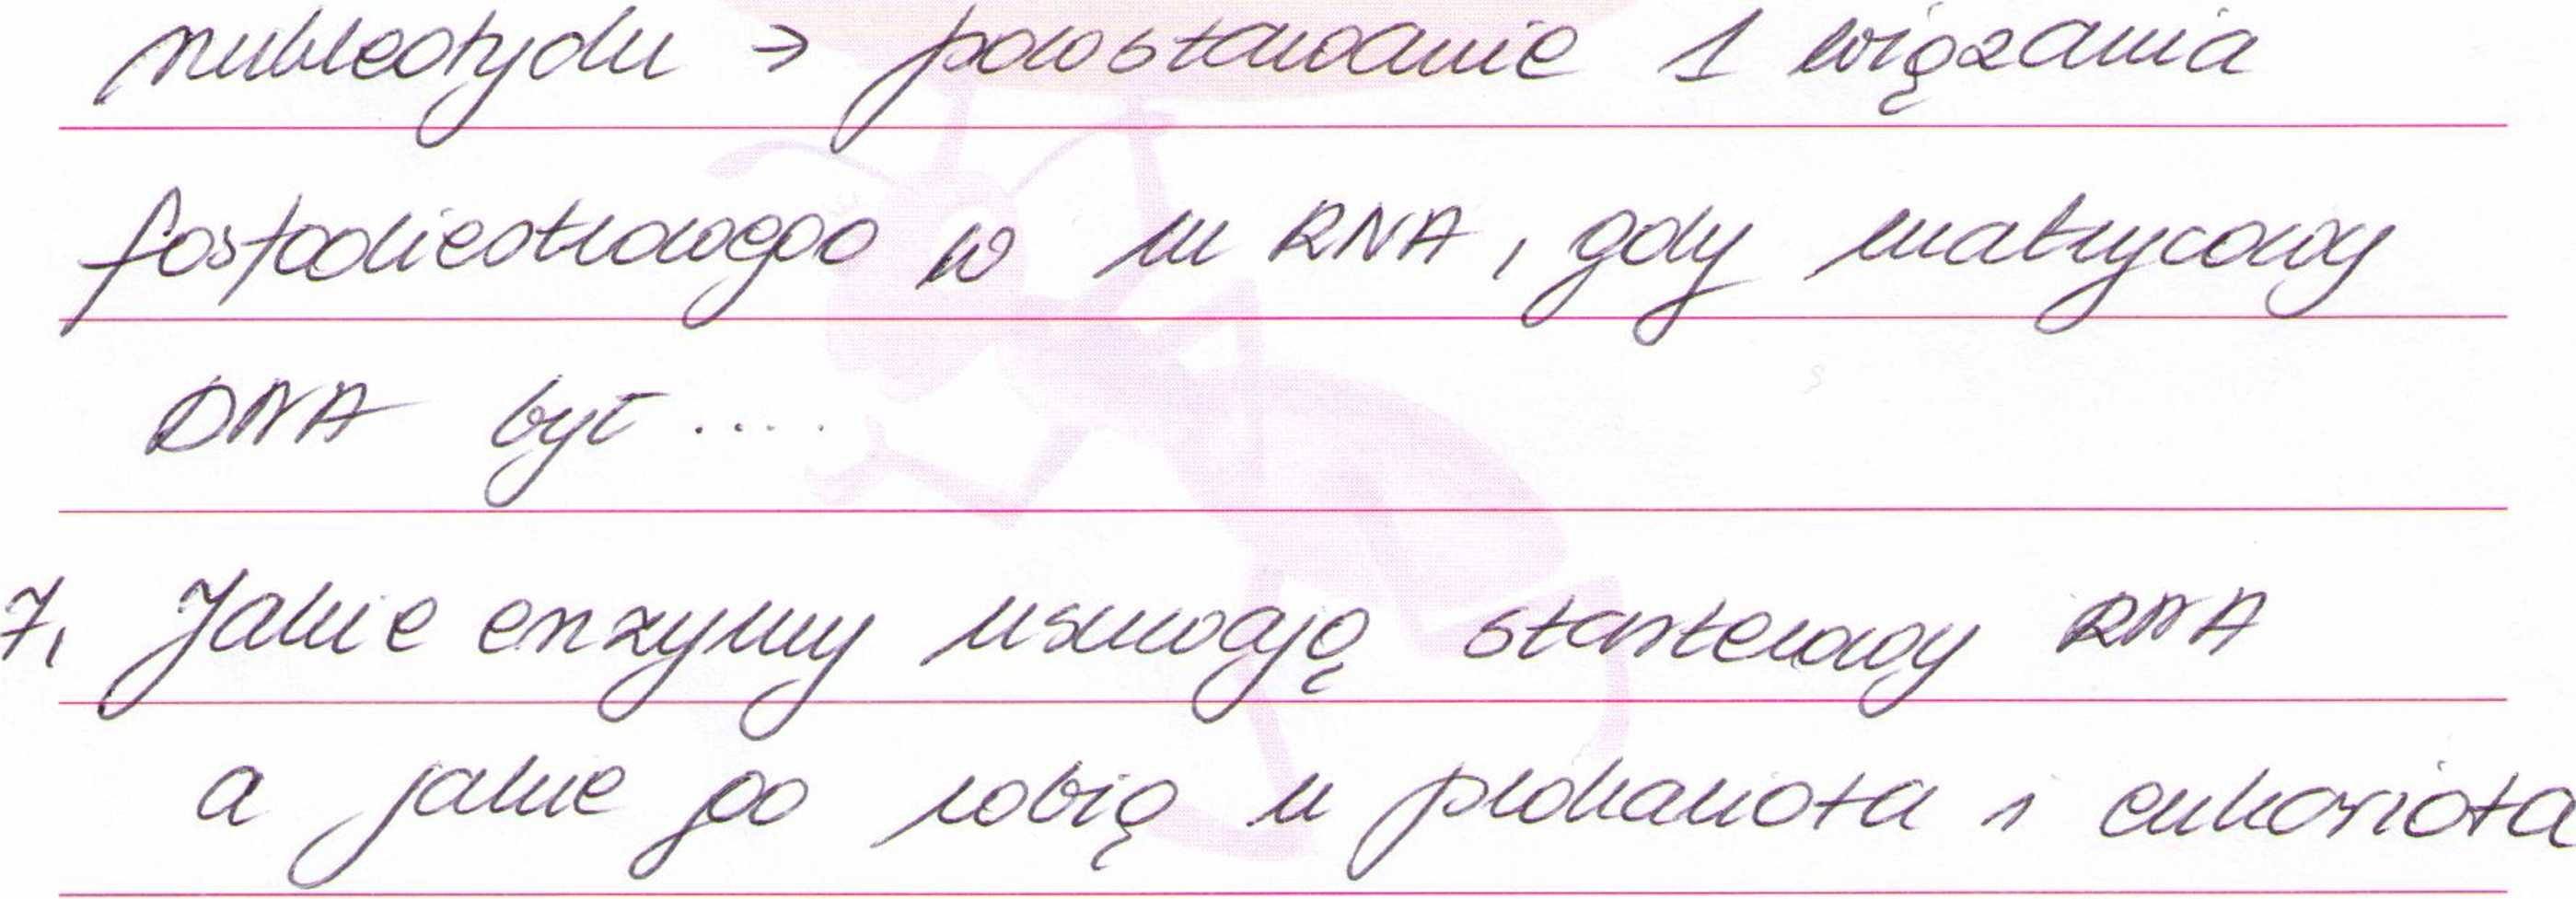 nukleotydu → powstawanie 1 wiązania
fosfodiestrowego w mRNA, gdy matrycowy
DNA był ....
7, Jakie enzymy usuwają starterowy RNA
a jakie go robią u prokariota i eukariota